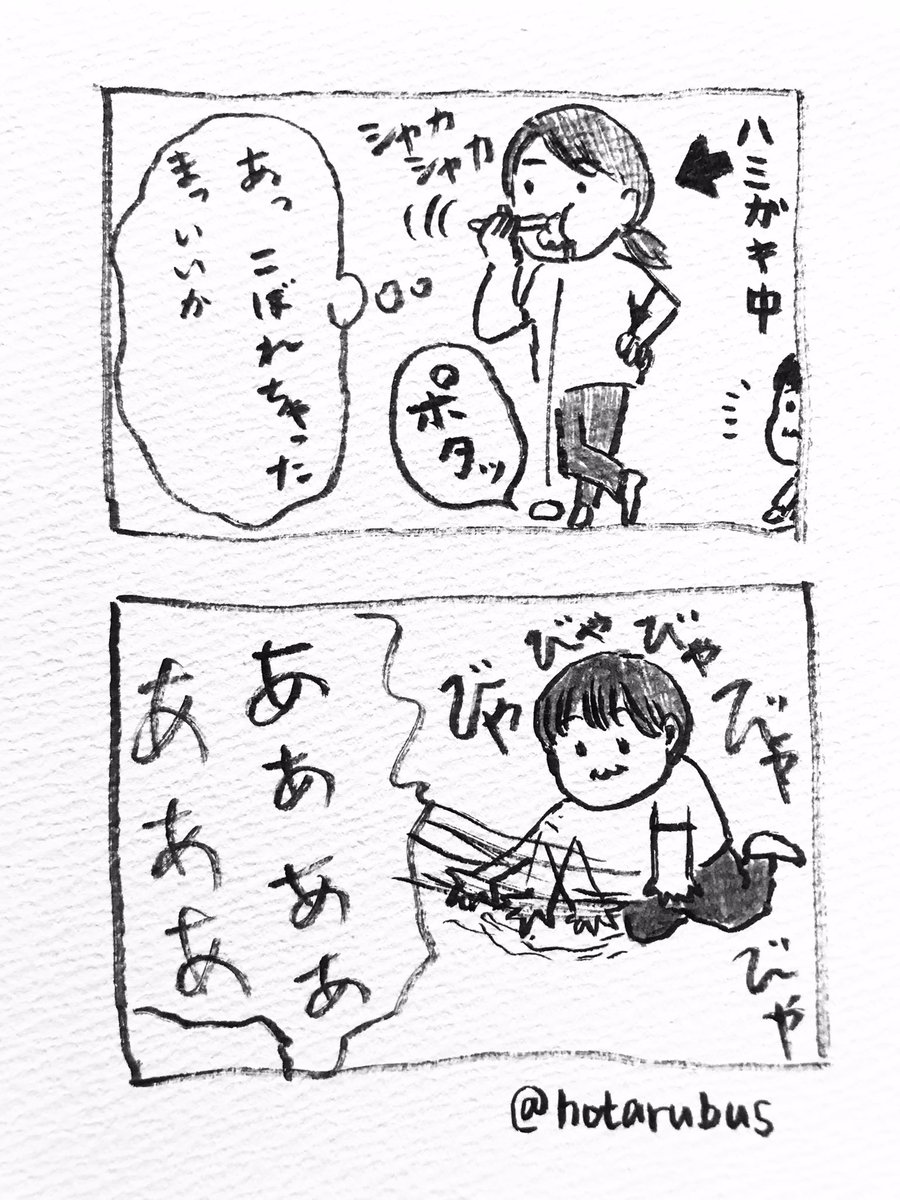 ハミガキ中
シャカ
シャカ
ポタッ
あっ こぼれちゃった
まっいいか
びゃ
びゃ
びゃ
びゃ
びゃ
ああああ
あああ
@hotarubus